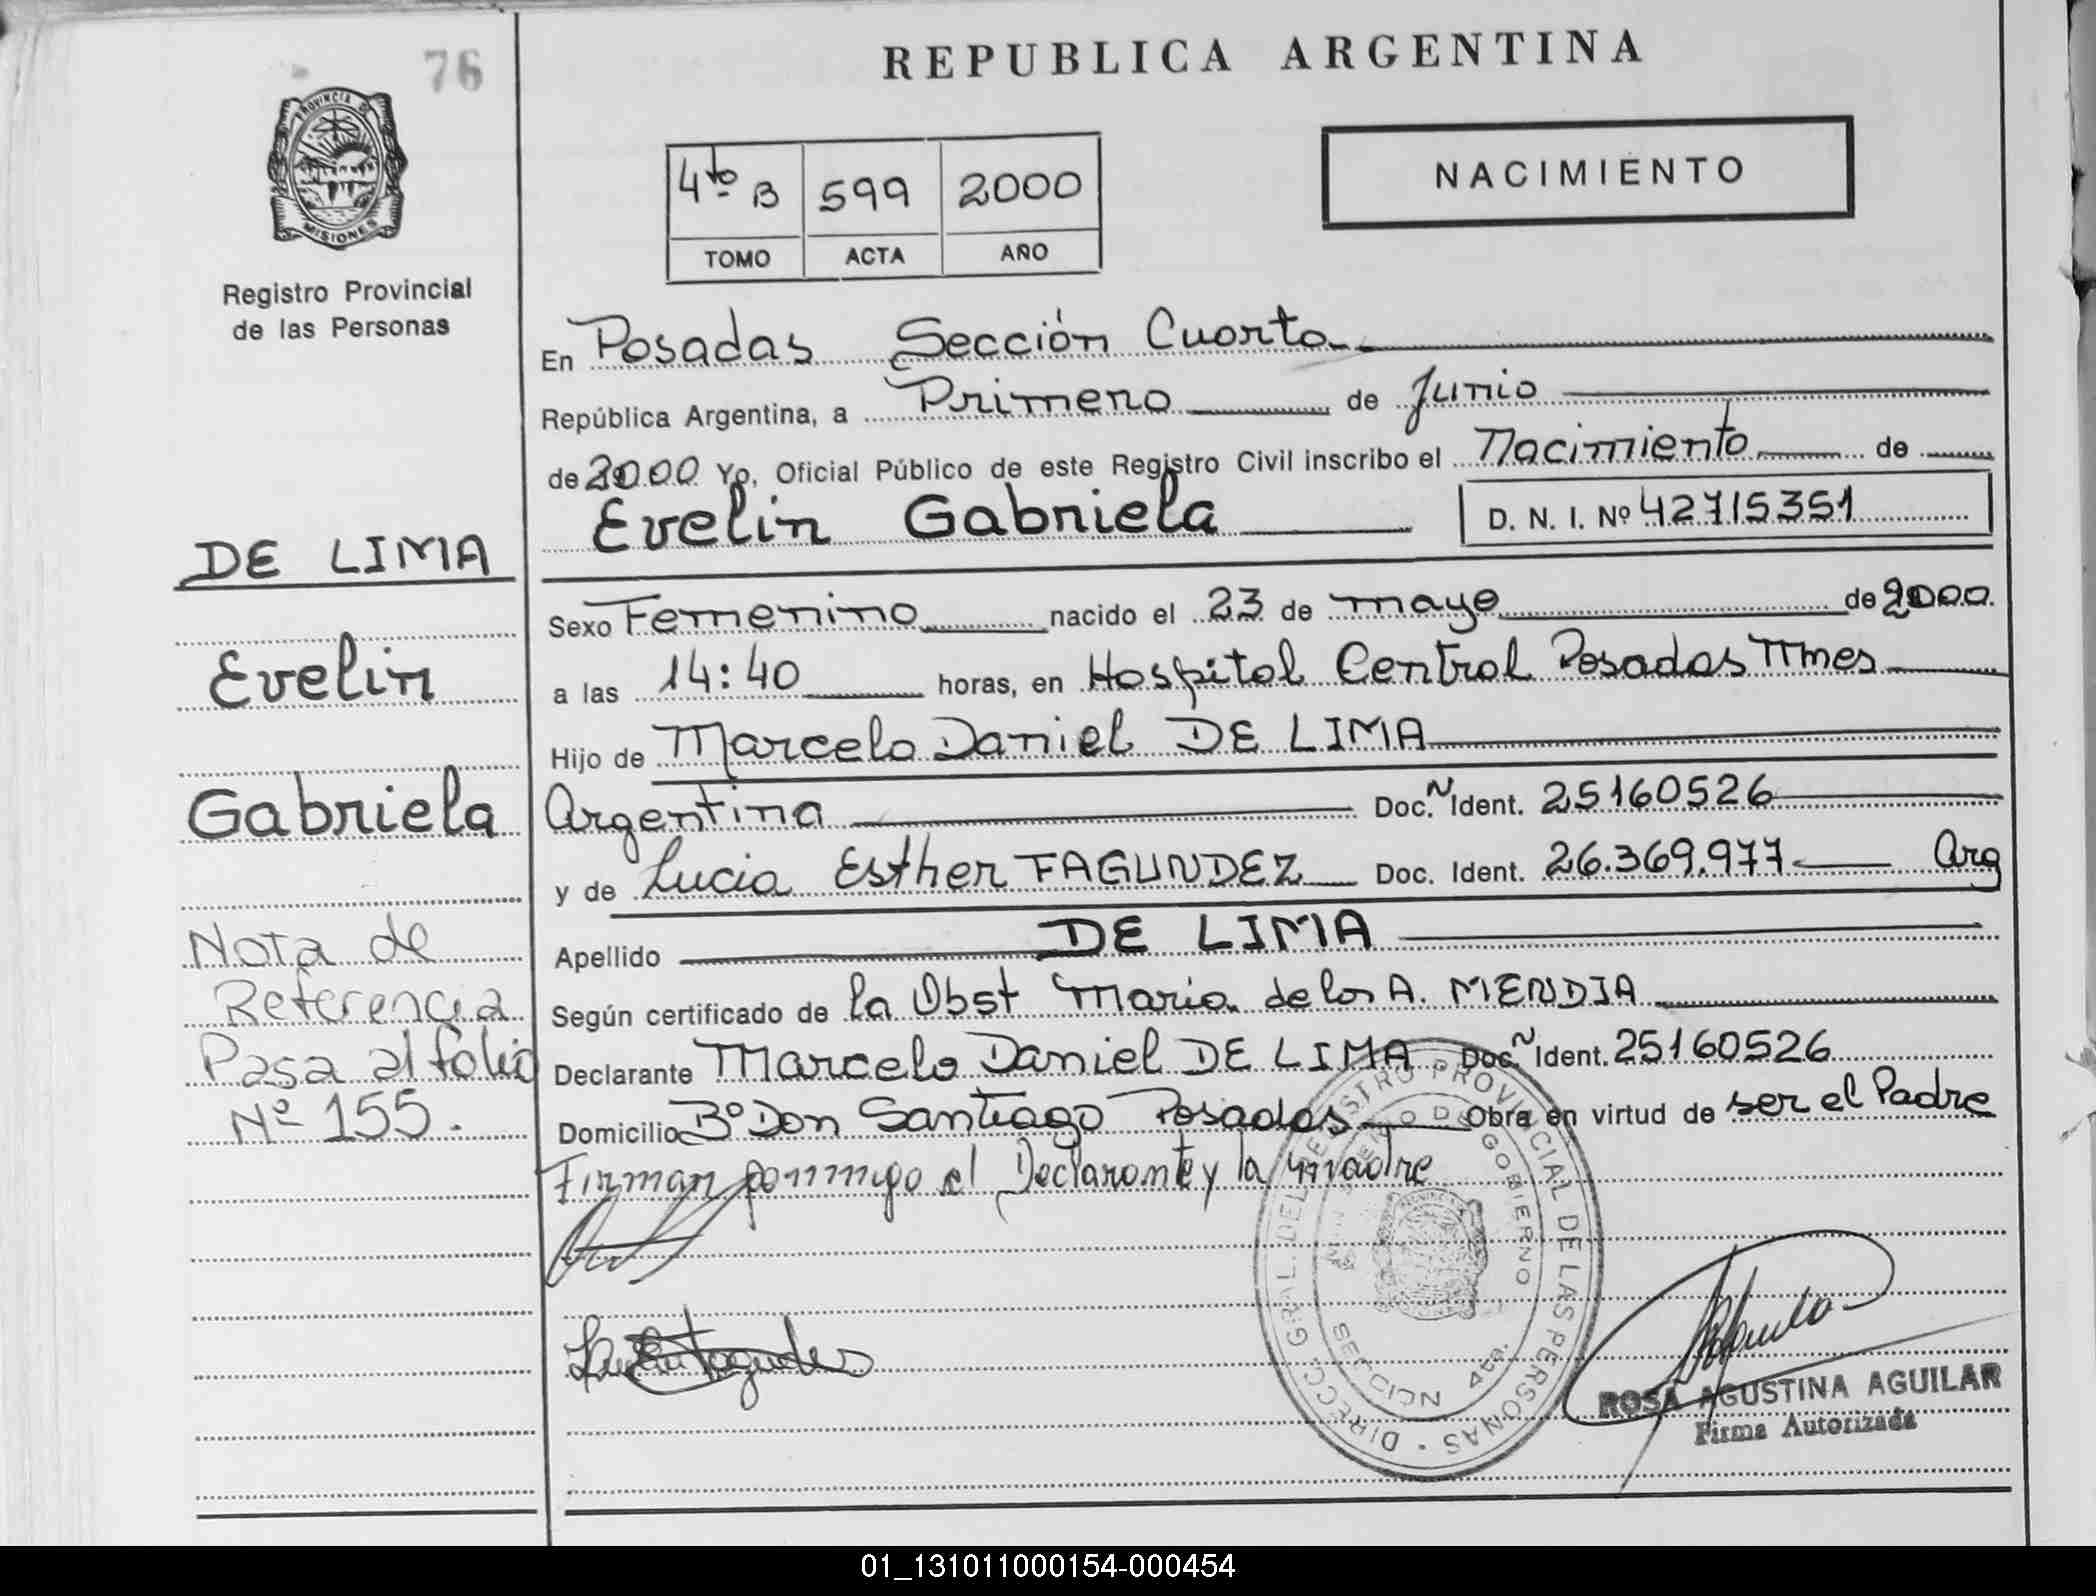 76
REPUBLICA ARGENTINA
PROVINCIA DE
MISIONES
4to B 599 2000
TOMO ACTA AÑO
NACIMIENTO
Registro Provincial
de las Personas
En Posadas Sección Cuarta
República Argentina, a Primero de Junio
de 2000 Yo, Oficial Público de este Registro Civil inscribo el Nacimiento de
Evelin Gabriela D. N. I. Nº 42715351
DE LIMA
Sexo Femenino nacido el 23 de mayo de 2000
Evelin
a las 14:40 horas, en Hospital Central Posadas Mnes
Hijo de Marcelo Daniel DE LIMA
Gabriela
Argentina Doc. Ident. 25160526
y de Lucia Esther FAGUNDEZ Doc. Ident. 26.369.977 Arg
Nota de
Apellido DE LIMA
Referencia
Según certificado de la Obst Maria de los A. MENDIA
Pasa al folio
Declarante Marcelo Daniel DE LIMA Doc. Ident. 25160526
Nº 155.
Domicilio Bº Don Santiago Posadas Obra en virtud de ser el Padre
Firman conmigo el Declarante y la madre
DIRECC. GRAL. DEL REGISTRO PROVINCIAL DE LAS PERSONAS
DE GOBIERNO
SECCION 4ta.
ROSA AGUSTINA AGUILAR
Firma Autorizada
01_131011000154-000454